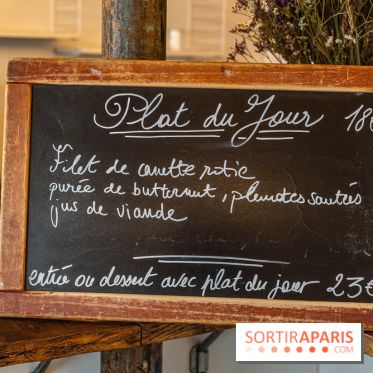 Plat du Jour 18€
Filet de canette rotie
purée de butternut, pleurotes sautées
jus de viande
entrée ou dessert avec plat du jour 23€
SORTIRAPARIS
.COM